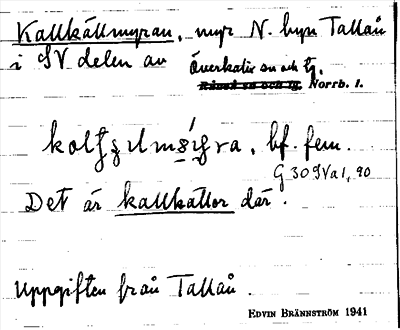 Kallkällmyran, myr N. byn Tallån
i SV delen av Överkalix sn och tg.
Råneå sn och tg. Norrb. l.
bf. fem.
G 30 SVa1, 90
Det är kallkällor där.
Uppgiften från Tallån
EDVIN BRÄNNSTRÖM 1941